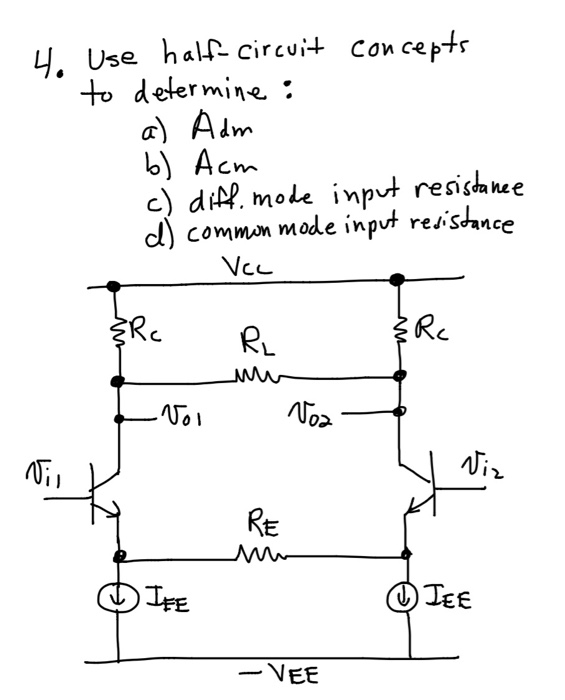 4. Use half-circuit concepts
to determine :
a) Adm
b) Acm
c) diff. mode input resistance
d) common mode input resistance
VCC
RC
RC
RL
Vo1
Vo2
Vi1
Vi2
RE
IEE
IEE
-VEE